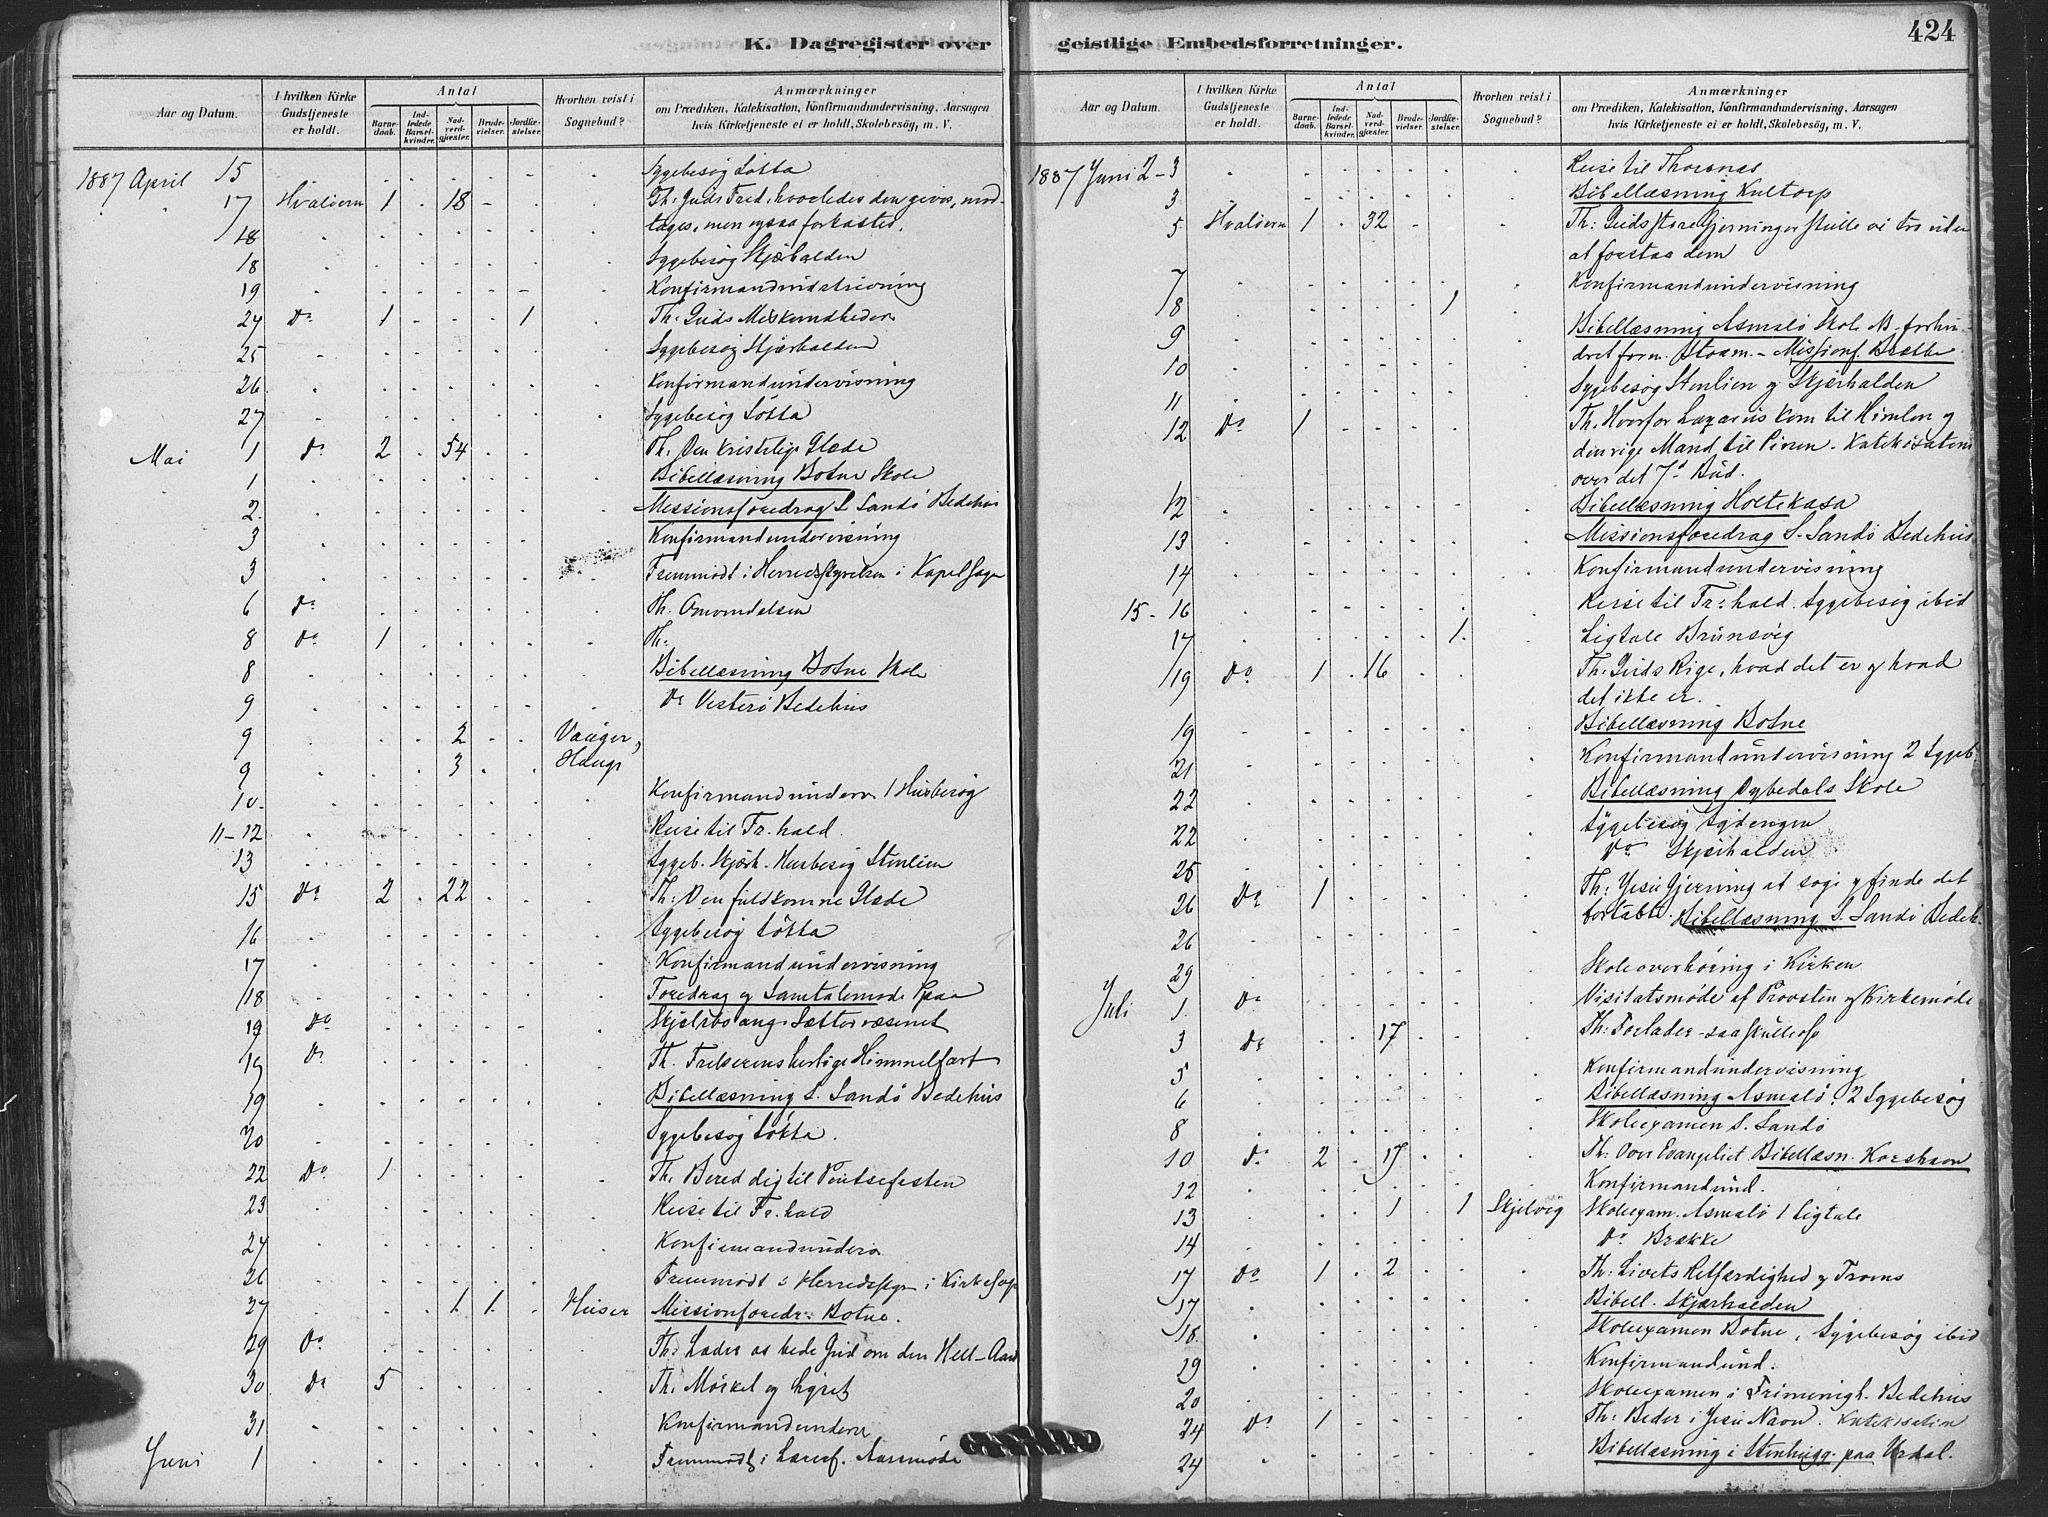 K. Dagregister over geistlige Embedsforretninger.
424
Aar og Datum.
I hvilken Kirke Gudstjeneste er holdt.
Antal
Barnedaab.
Indledede Barselkvinder.
Nadverdgjæster.
Brudevielser.
Jordfæstelser.
Hvorhen reist i Sognebud?
Anmærkninger
om Prædiken, Katekisation, Konfirmandundervisning, Aarsagen
hvis Kirketjeneste ei er holdt, Skolebesög, m. V.
1887 April 15 Sygebesög Lökka
17 Hvalöern 1 18 Th: Guds Fred, hvorledes den gives, mod-
tages, men ogsaa forkastes.
18
18 Sygebesög Skjærhalden
19 Konfirmandundervisning
24 Do 1 1 Th: Guds Miskundheder
25 Sygebesög Skjærhalden
26 Konfirmandundervisning
27 Sygebesög Lökka
Mai 1 Do 2 54 Th. Den kristelige Glæde
1 Bibellæsning Botne Skole
2 Missionsforedrag S. Sandö Bedehus
3 Konfirmandundervisning
3 Fremmödt i Herredsstyrelsen i Kapelsagen
6 Do Th. Omvendelsen
8 Do 1 Th:
8 Bibellæsning Botne Skole
9 Do Vesterö Bedehus
9 2
9 3 Hauge
10 Konfirmandunderv. 1 Husbesög
11-12 Reise til Fr.hald.
13 Sygeb. Skjærh. Husbesög Stenlien
15 Do 2 22 Th: Den fuldkomne Glæde
16 Sygebesög Lökka
17 Konfirmandundervisning
18 Foredrag og Samtalemöde Spaa
19 Do Skjelsbo ang. Lættervæsenet
19 Do Th. Frelserens herlige Himmelfart
19 Bibellæsning S. Sandö Bedehus
20 Sygebesög Lökka.
22 Do 1 Th. Bered dig til Pintsefesten
23 Reise til Fr.hald
24 Konfirmandunderv
26 Fremmödt i Herredsstyr i Kirkesag
27 1 1 Huser Missionsforedr. Botne.
29 Do Th: Lader os bede Gud om den Hell-Aand
30 Do 5 Th. Mörket og Lyset
31 Konfirmandunderv
Juni 1 Fremmödt i Læsef. Aarsmöde
Aar og Datum.
I hvilken Kirke Gudstjeneste er holdt.
Antal
Barnedaab.
Indledede Barselkvinder.
Nadverdgjæster.
Brudevielser.
Jordfæstelser.
Hvorhen reist i Sognebud?
Anmærkninger
om Prædiken, Katekisation, Konfirmandundervisning, Aarsagen
hvis Kirketjeneste ei er holdt, Skolebesög, m. V.
1887 Juni 2-3 Reise til Thorsnæs
3 Bibellæsning Kultorp
5 Hvalöern 1 32 Th: Guds store Gjerninger skulle vi tro uden
at forstaa dem
7 Konfirmandundervisning
8 1
9 Bibellæsning Asmalö Skole forhin-
dret form. Storm. - Missionsf. Brække
10 Sygebesög Stenlien og Skjærhalden
11
12 Do 1 Th. Hvorfor Lazarus kom til Himlen og
den rige Mand til Pinen. Katekisation
over det 7de Bud.
12 Bibellæsning Holtekasa
13 Missionsforedrag S. Sandö Bedehus
14 Konfirmandundervisning
15-16 Reise til Fr:hald. Sygebesög ibid
17 1 Ligtale Brunsvig
19 Do 1 16 Th: Guds Rige, hvad det er og hvad
det ikke er.
19 Bibellæsning Botne
21 Konfirmandundervisning 2 Sygeb.
22 Bibellæsning Dybedals Skole
22 Sygebesög Sydengen
25 Do Skjærhalden
26 Do 1 Th: Jesu Gjerning at söge og finde det
fortabte. Bibellæsning S. Sandö Bedeh.
26
29 Skoleoverhöring i Kirken
Juli 1 Do Visitatsmöde af Provsten og Kirkemöde
3 Do 17 Th: Forlader-saa skulle
5 Konfirmandundervisning
6 Bibellæsning Asmalö, 2 Sygebesög
8 Skoleexamen S. Sandö
10 Do 2 17 Th: Over Evangeliet Bibellæsn. Korshavn
12 Konfirmandund.
13 1 1 Skjelvig Skoleexam. Asmalö 1 Ligtale
14 Do Brække
17 Do 1 2 Th: Livets Retfærdighed og Troens
17 Bibell. Skjærhalden
18 Skoleexamen Botne, Sygebesög ibid
19 Konfirmandund.
20 Skoleexamen i Frimenigh. Bedehus
24 Do 1 Th: Beder i Jesu Navn. Katekisation
24 Bibellæsning i Stenhugg. paa Urdal.